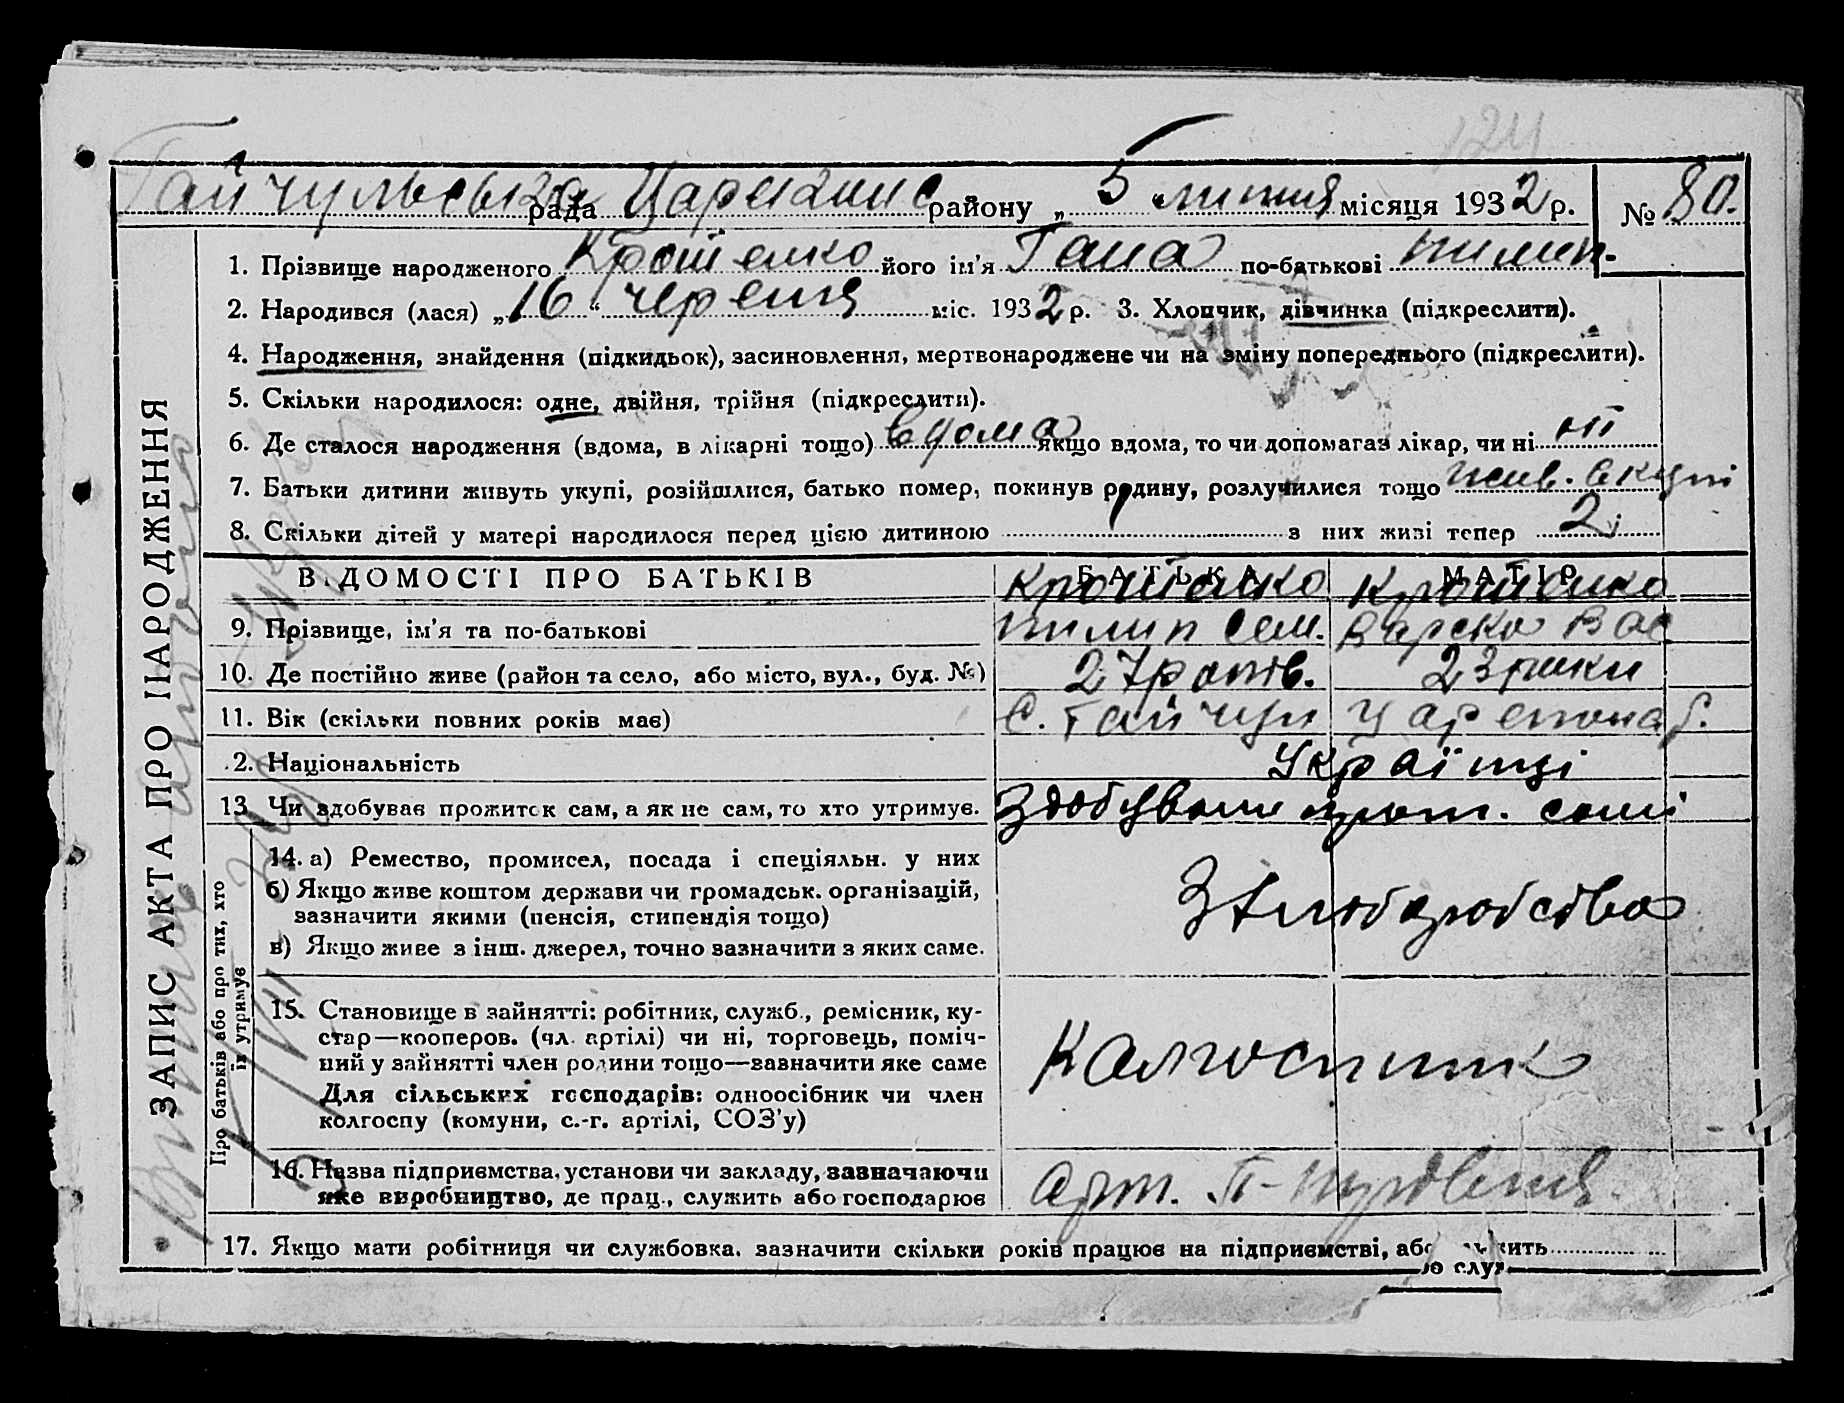 124
Гайчульська рада Царекинс району „ 5 „ липня місяця 1932 р. № 80.
1. Прізвище народженого Кротенко його ім'я Гана по-батькові Пилип.
2. Народився (лася) „ 16 “ червня міс. 1932 р. 3. Хлопчик, дівчинка (підкреслити).
4. Народження, знайдення (підкидьок), засиновлення, мертвонароджене чи на зміну попереднього (підкреслити).
5. Скільки народилося: одне, двійня, трійня (підкреслити).
6. Де сталося народження (вдома, в лікарні тощо) вдома якщо вдома, то чи допомагав лікар, чи ні ні
7. Батьки дитини живуть укупі, розійшлися, батько помер, покинув родину, розлучилися тощо жив. вкупі
8. Скільки дітей у матері народилося перед цією дитиною з них живі тепер 2
ВІДОМОСТІ ПРО БАТЬКІВ БАТЬКА МАТІР
Кротенко Кротенко
9. Прізвище, ім'я та по-батькові Пилип Сем. Варька Вас
10. Де постійно живе (район та село, або місто, вул., буд. №) 27 років. 23 роки
11. Вік (скільки повних років має) С. Гайчул
12. Національність Українці
13. Чи здобуває прожиток сам, а як не сам, то хто утримує. Здобували прож. самі
Про батьків або про тих, хто їх утримує
14. а) Ремество, промисел, посада і спеціяльн. у них
б) Якщо живе коштом держави чи громадськ. організацій, зазначити якими (пенсія, стипендія тощо)
в) Якщо живе з інш. джерел, точно зазначити з яких саме.
З хліборобства
15. Становище в зайнятті: робітник, служб., ремісник, ку-
стар—кооперов. (чл. артілі) чи ні, торговець, поміч-
ний у зайнятті член родини тощо—зазначити яке саме
Для сільських господарів: одноосібник чи член
колгоспу (комуни, с.-г. артілі, СОЗ'у)
Колгоспник
16. Назва підприємства, установи чи закладу, зазначаючи
яке виробництво, де прац., служить або господарює
Арт.
17. Якщо мати робітниця чи службовка, зазначити скільки років працює на підприємстві, або
ЗАПИС АКТА ПРО НАРОДЖЕННЯ